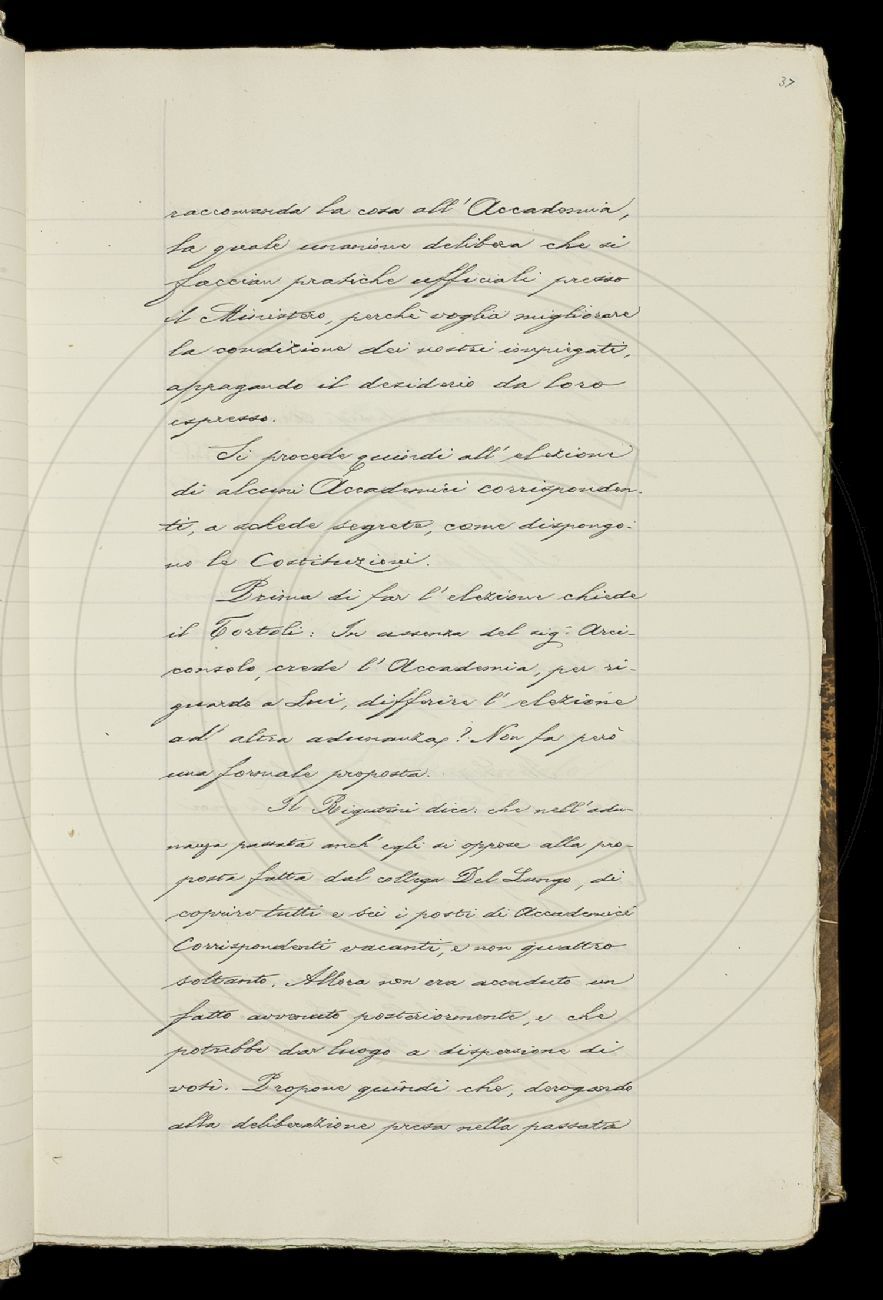 37
raccomanda la cosa all'Accademia,
la quale unanime delibera che si
faccian pratiche ufficiali presso
il Ministero, perchè voglia migliorare
la condizione dei nostri impiegati,
appagando il desiderio da loro
espresso.
Si procede quindi all'elezioni
di alcuni Accademici corrisponden-
ti, a schede segrete, come dispongo-
no le Costituzioni.
Prima di far l'elezione chiede
il Tortoli: In assenza del sig. Arci-
consolo, crede l'Accademia, per ri-
guardo a Lui, differire l'elezione
ad altra adunanza? Non fa però
una formale proposta.
Il Rigutini dice: che nell'adu-
nanza passata anch'egli si oppose alla pro-
posta fatta dal collega Del Lungo, di
coprire tutti e sei i posti di Accademici
Corrispondenti vacanti, e non quattro
soltanto. Allora non era accaduto un
fatto avvenuto posteriormente, e che
potrebbe dar luogo a dispersione di
voti. Propone quindi che, derogando
alla deliberazione presa nella passata